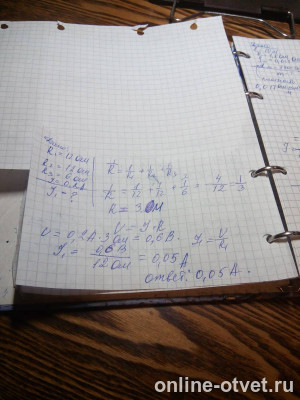 R₁ = 12 Ом
R₂ = 12 Ом
R₃ = 6 Ом
I = 0,2 А
I₁ - ?
1/R = 1/R₁ + 1/R₂ + 1/R₃
1/R = 1/12 + 1/12 + 1/6 = 4/12 = 1/3
R = 3 Ом
U = I · R
U = 0,2А · 3 Ом = 0,6 В. I₁ = U/R₁
I₁ = 0,6 В / 12 Ом = 0,05 А
ответ: 0,05 А.
online-otvet.ru